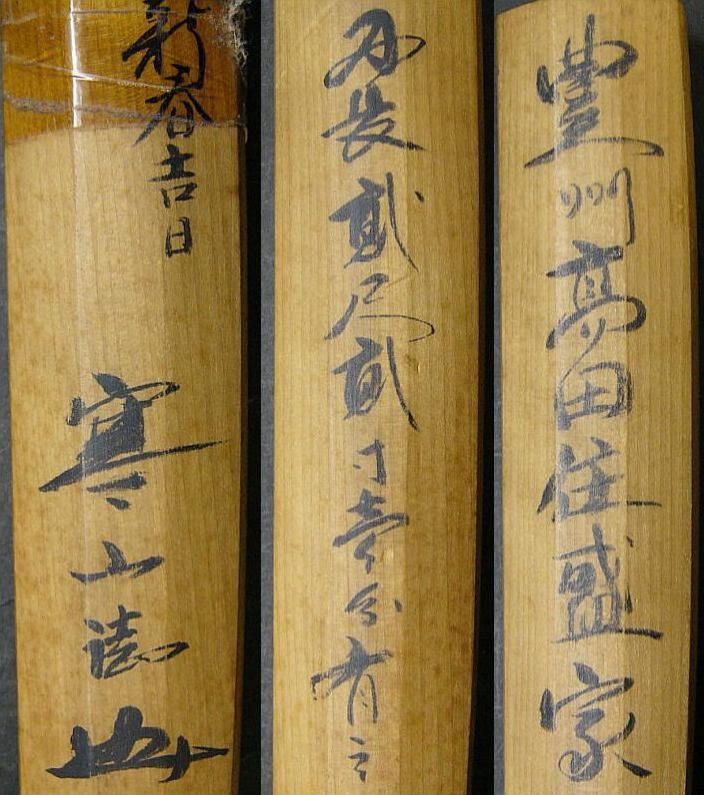 豊州高田住盛家
刃長貳尺貳寸壱分有之
新春吉日
寒山誌